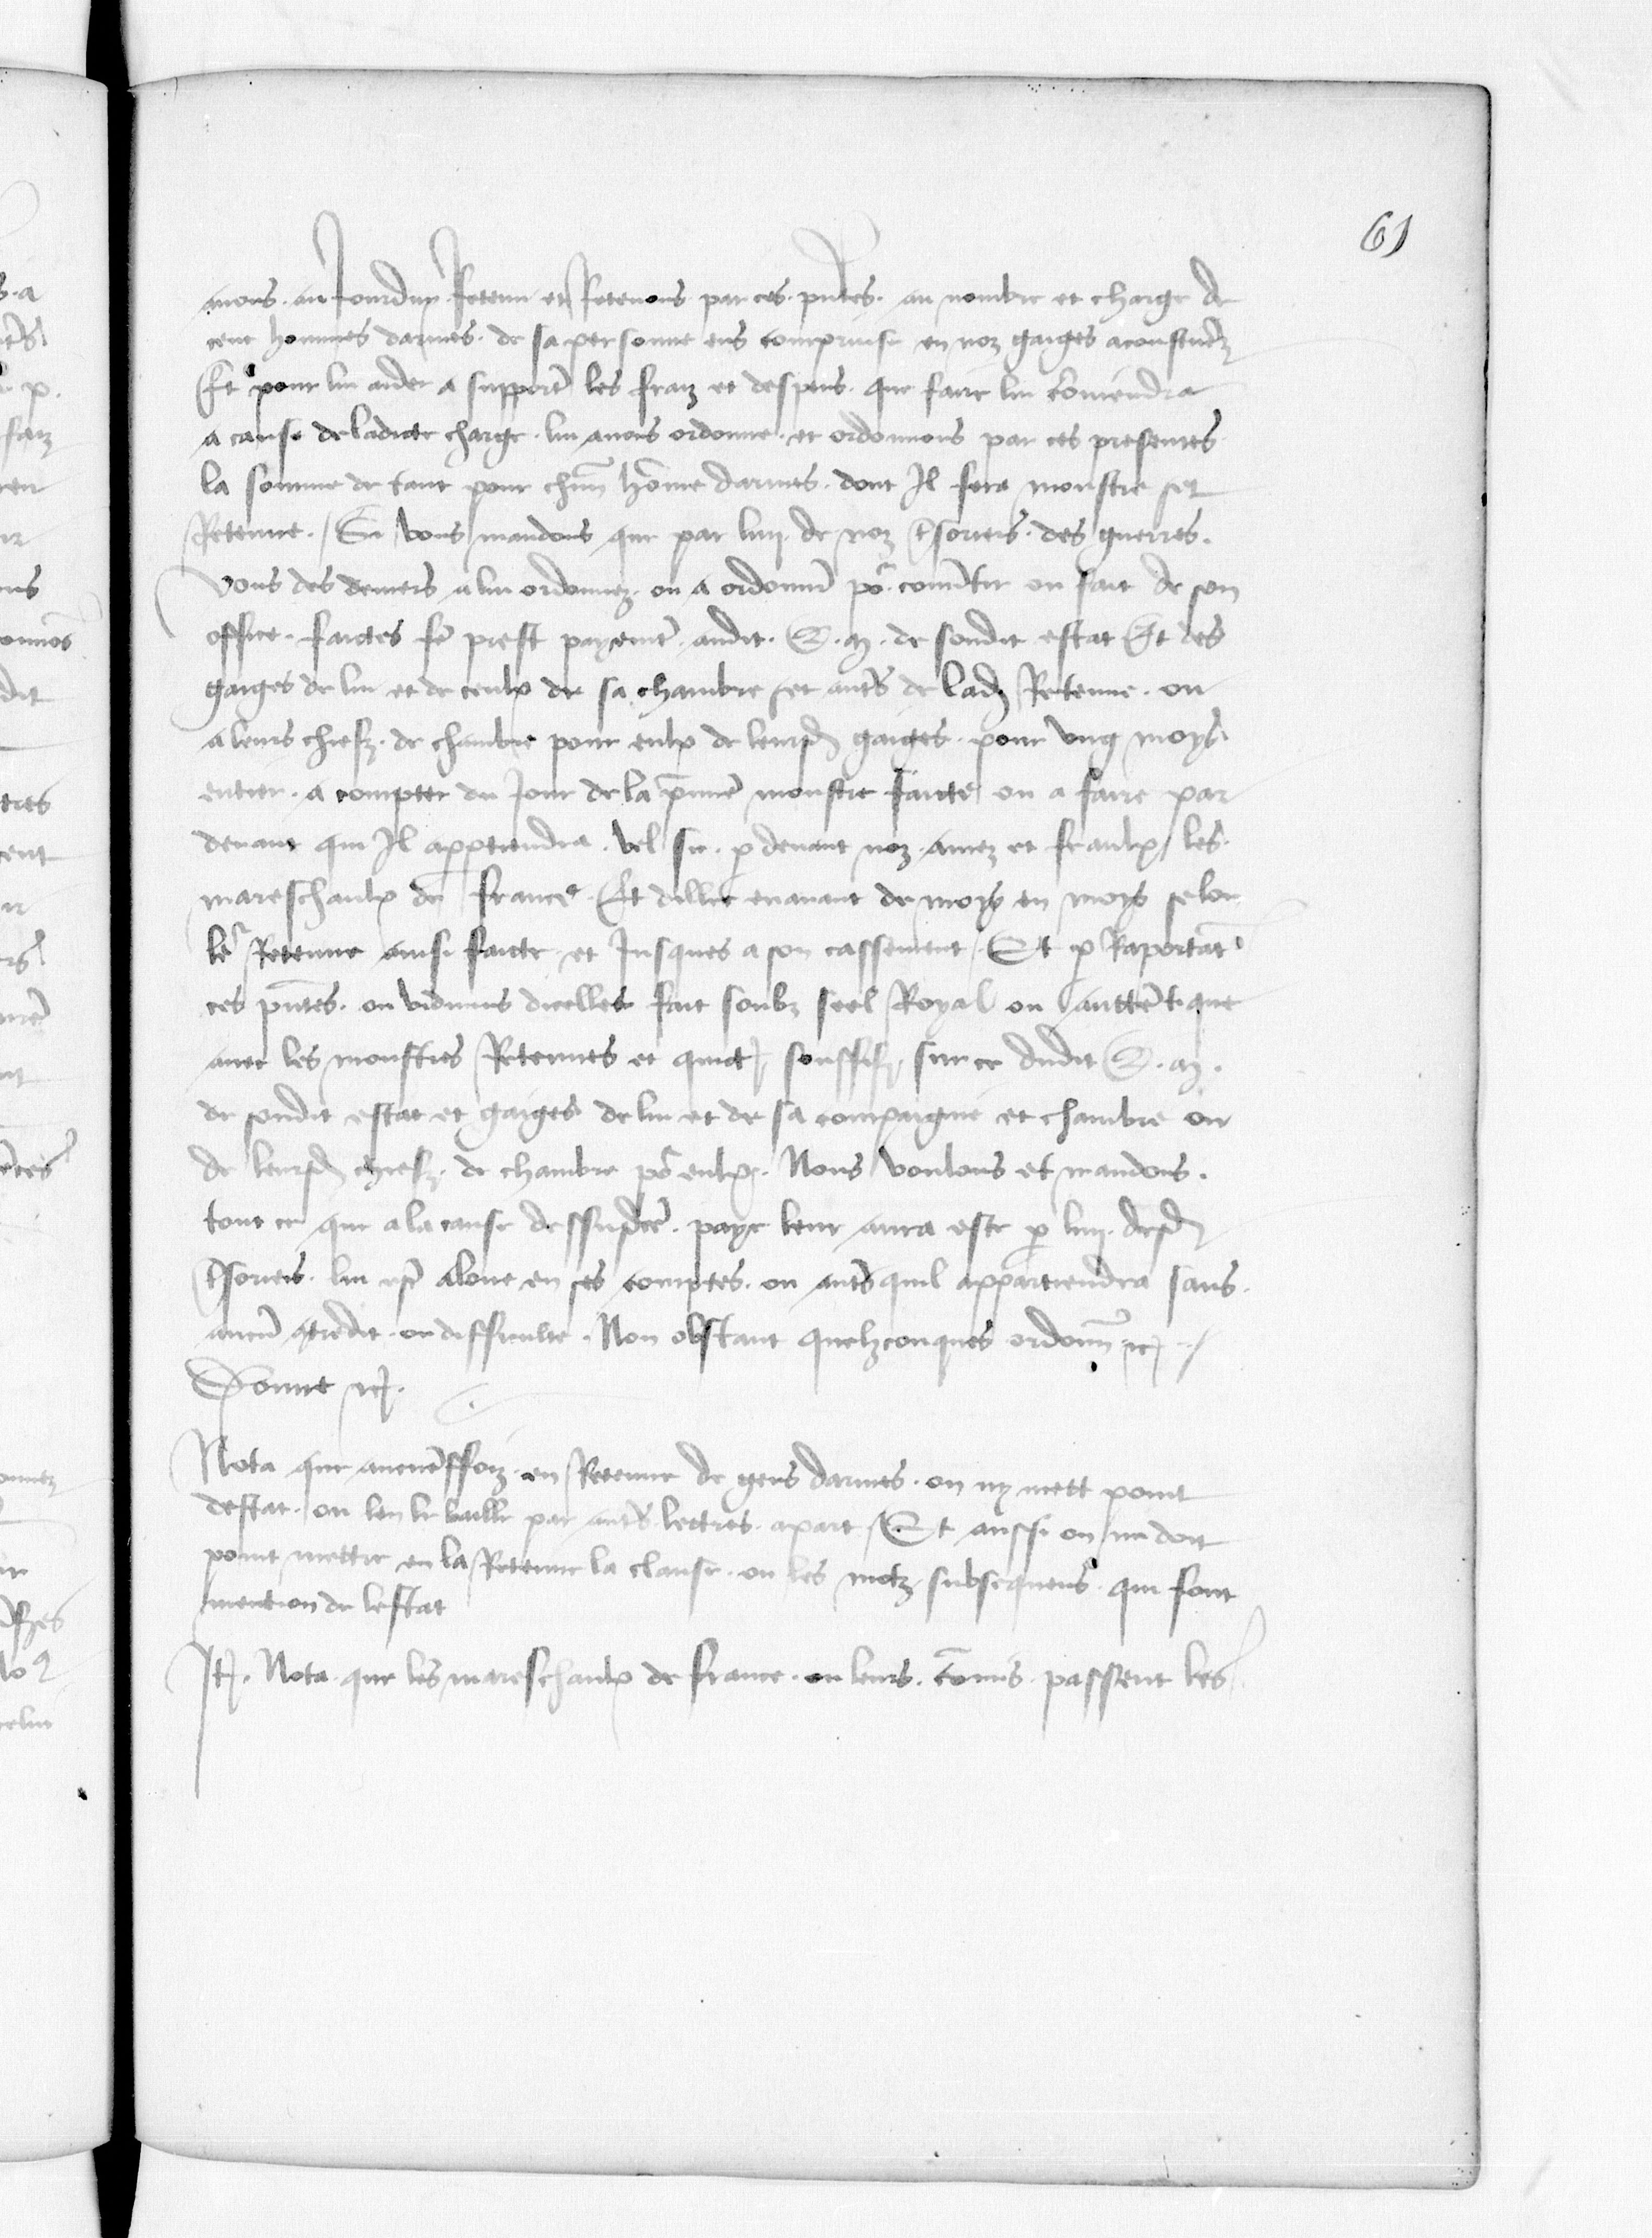 61
avons au Jourduy Retenu et Retenons par ces pntes. au nombre et charge de
cent hommes darmes. de sa personne ens comprinse en noz gaiges acoustumez
Et pour lui aider a supporter les fraiz et despens. que faire lui couviendra
a cause de ladicte charge. lui avons ordonne. et ordonnons par ces presentes
la somme de tant pour chun home darmes. dont Il fera monstre et
Retenue. Si vous mandons que par lun de noz tsoriers. des guerres.
vous des deniers a lui ordonnez. ou a ordonner por convertir ou fait de son
office. faictes fe prest payemt. audit. de sondit estat Et des
gaiges de lui et de ceulx de sa chambre et autres de lad Retenue. ou
a leurs chiefz. de chambre pour eulx de leursd gaiges. pour ung moys
entier. a compter du Jour de la pmiere monstre faicte ou a faire par
devant qui Il apptiendra. vel sic. p devant noz amez et feaulx les
mareschaulx de france. Et dillec en avant de moys en moys selon
ler Retenue ainsi faicte et Jusques a son cassement. Et p Raportant
ces pntes. ou vidimus dicelles fait soubz seel Royal ou auttentique
avec les monstres Retenues et quict souffis sur ce dudit
de sondit estat et gaiges de lui et de sa compaignie et chambre ou
de leursd chiefz. de chambre por eulx. Nous voulons et mandons.
tout ce que a la cause dessusd. paye leur aura este p lun desd
tsoriers. lui estre aloue en ses comptes. ou autres quil appartiendra sans.
aucun contredit ou difficulte. Non obstant quelzconques ordonn
Donne
Nota que aucunesffoiz en Retenue de gens darmes. on ny mett point
destat. ou len le baille par autres lectres. apart Et aussi on ne doit
point mettre en la Retenue la clause. ou les motz subsequens qui font
mention de lestat
It. Nota que les mareschaulx de france. ou leurs. comis passent les